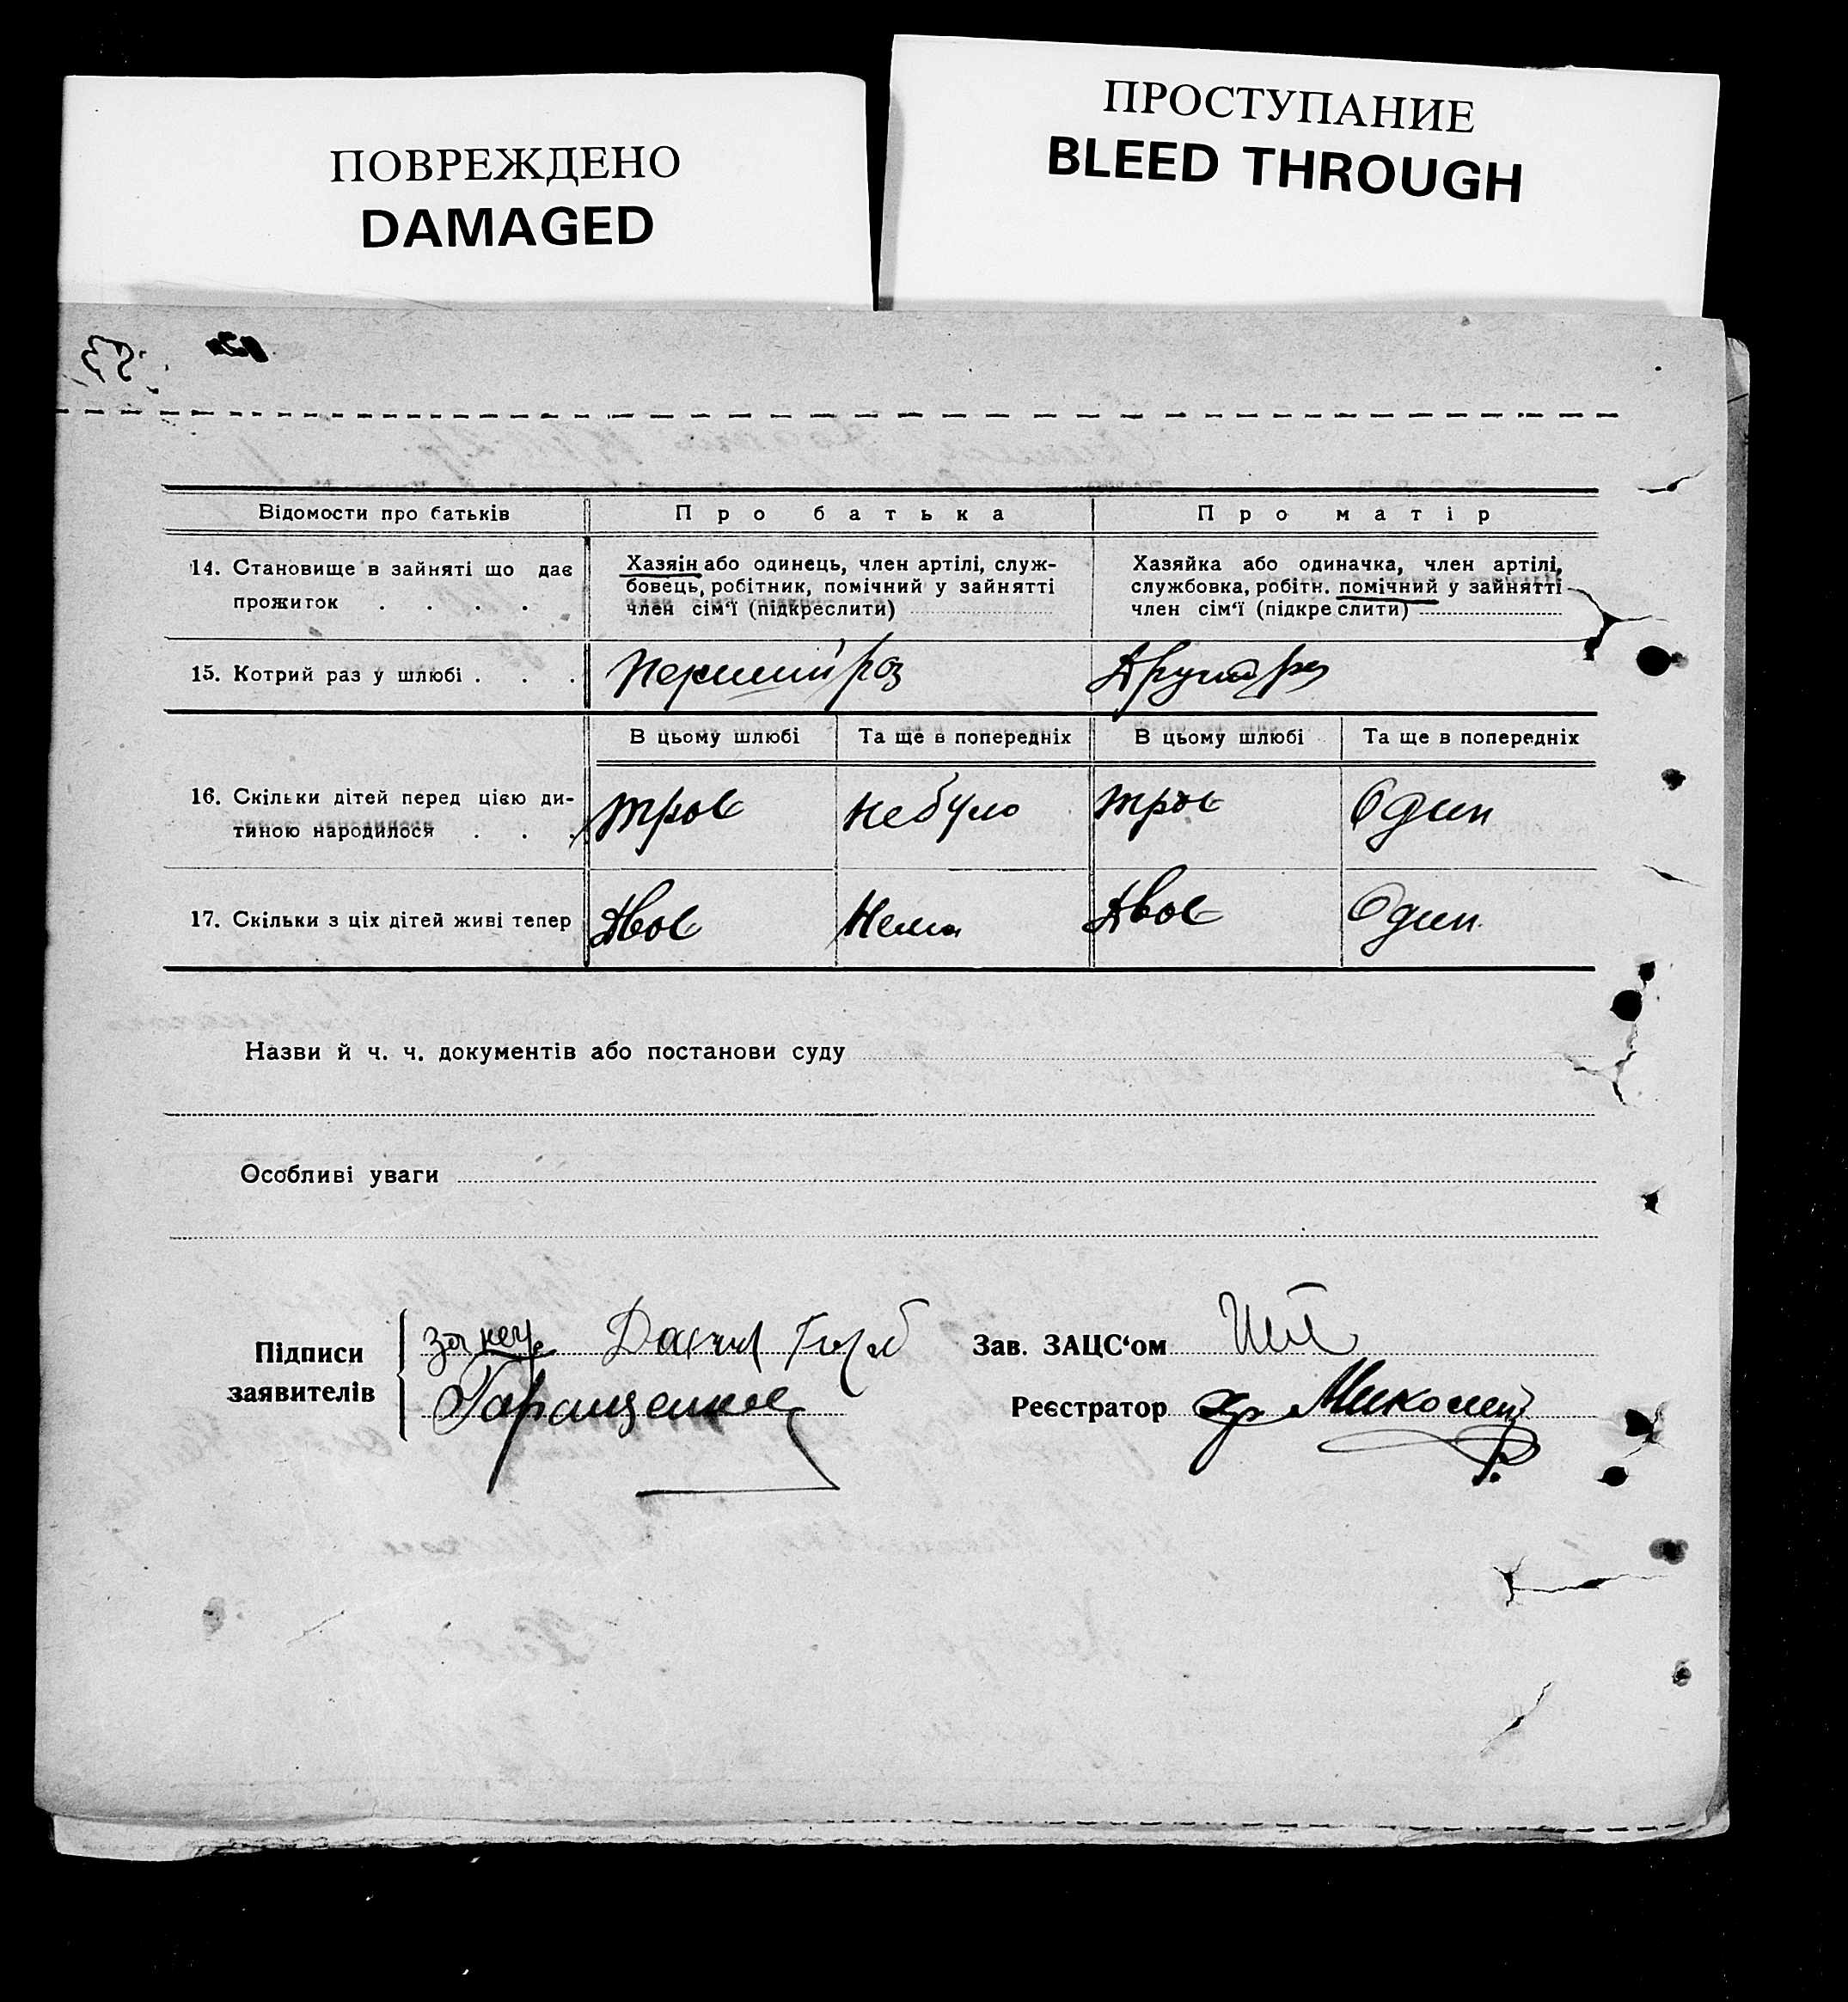 ПОВРЕЖДЕНО
DAMAGED
ПРОСТУПАНИЕ
BLEED THROUGH
53
Відомости про батьків
Про батька
Про матір
14. Становище в зайняті що дає
прожиток . . . .
Хазяін або одинець, член артілі, служ-
бовець, робітник, помічний у зайнятті
член сім'ї (підкреслити)
Хазяйка або одиначка, член артілі,
службовка, робітн. помічний у зайнятті
член сім'ї (підкреслити)
15. Котрий раз у шлюбі . . .
Перший раз
Другий раз
В цьому шлюбі
Та ще в попередніх
В цьому шлюбі
Та ще в попередніх
16. Скільки дітей перед цією ди-
тиною народилося . . .
троє
небуло
троє
Один
17. Скільки з ціх дітей живі тепер
Двоє
Нема
Двоє
Один
Назви й ч. ч. документів або постанови суду
Особливі уваги
Підписи
заявителів
за
Гаращенко
Зав. ЗАЦС'ом
Реєстратор